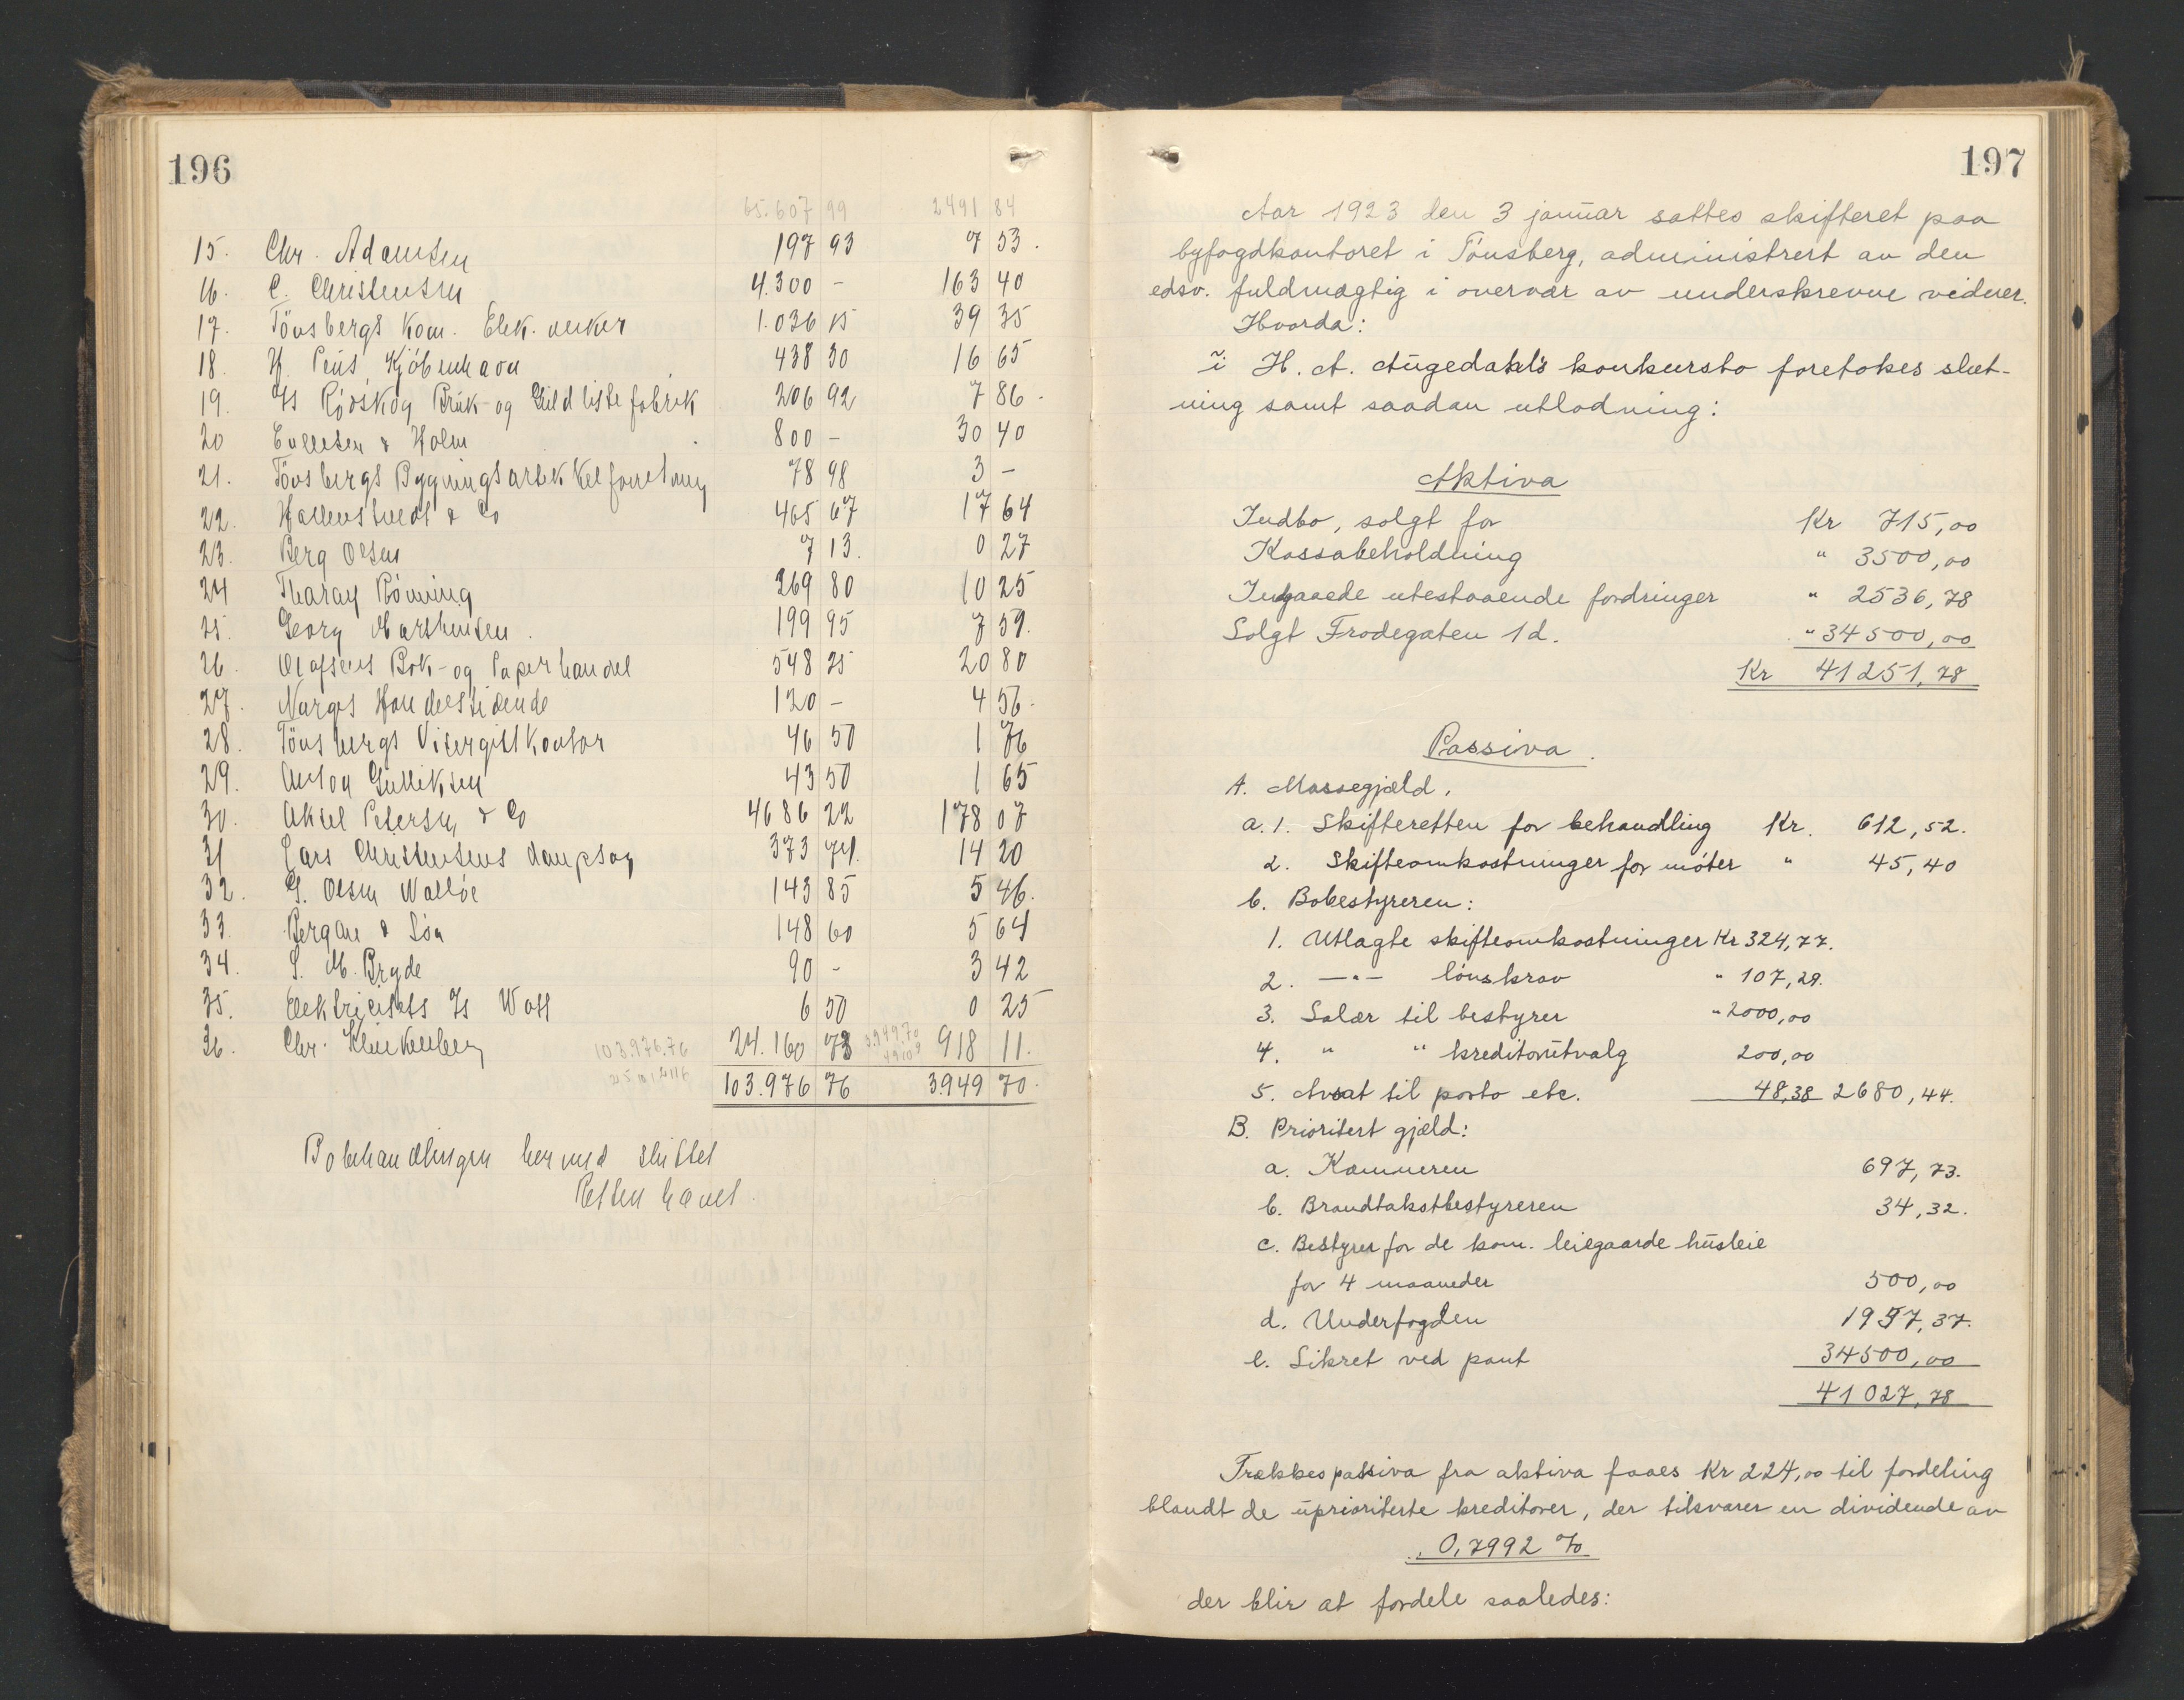 196
65.607 99 2491 84
15. Chr. Adamsen 197 93 7 53.
16. C. Christensen 4.300 - 163 40
17. Tönsbergs Kom. Elek. verker 1.036 15 39 35
18. H. Peüs, Kjöbenhavn 438 30 16 65
19. As Röðskog Brük- og Güldlistefabrik 206 92 7 86-
20 Ellefsen & Holm 800 - 30 40
21. Tönsbergs Bygningsartikkelforretning 78 98 3 -
22. & Co 465 67 17 64
23. Berg Olsen 7 13. 0 27
24 Röning 269 80 10 25
25. Georg Marthinsen. 199 95 7 59.
26. Olafsens Bok- og Papirhandel 548 25 20 80
27. Norges Handelstidende 120 - 4 56-
28. Tönsbergs Visergutkontor 46 50 1 76
29. Anton Gülliksen 43 50 1 65
30. Aksel Petersen & Co 4686 22 178 07
31 Lars Christensens dampsag 373 74. 14 20
32. G. Olsen Wallöe 143 85 5 46.
33. Bergan & Sön 148 60 5 64
34. S. M. Bryde 90 - 3 42
35. Elektricitets As Watt 6 50 0 25
36. Chr. Klinkenberg 103.976.76 24.160 73 3.949.70 918 11.
103.976 76 3.949 70.
Bobehandlingen hermed sluttet
Retten hævet.
197
Aar 1923 den 3 janüar sattes skifteret paa
byfogdkontoret i Tönsberg, administrert av den
edsv. fuldmægtig i overvær av underskrevne vidner.
Hvorda:
i H. A. Aügedahl's konkursbo foretokes slut-
ning samt saadan utlodning:
Aktiva
Indbo, solgt for Kr 715,00
Kassabeholdning " 3500,00
Indgaaede utestaaende fordringer " 2536,78
Solgt Frodegaten 1d. " 34500,00
Kr 41251,78
Passiva.
A. Massegjæld.
a. 1. Skifteretten for behandling Kr. 612,52.
2. Skifteomkostninger for möter " 45,40
b. Bobestyreren:
1. Utlagte skifteomkostninger Kr 324,77.
2. —"— lönskrav " 107,29.
3. Salær til bestyrer " 2000,00
4. " " kreditorütvalg 200,00
5. Avsat til porto etc. 48,38 2680,44.
B. Prioritert gjæld:
a. Kæmneren 697,73.
b. Brandtakstbestyreren 34,32.
c. Bestyrer for de kom. leiegaarde hüsleie
for 4 maaneder 500,00
d. Underfogden 1957,37.
e. Sikret ved pant 34500,00
41027,78
Trækkes passiva fra aktiva faaes Kr 224,00 til fordeling
blandt de üprioriterte kreditorer, der tilsvarer en dividende av
0,7992 %
der blir at fordele saaledes: